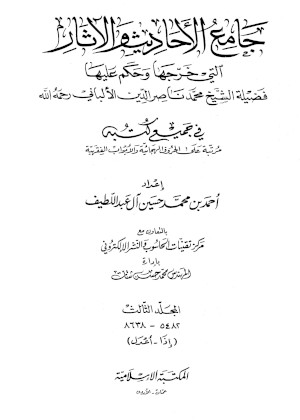 جامع الأحاديث والآثار
التي خرّجها وحكم عليها
فضيلة الشيخ محمد ناصر الدين الألباني رحمه الله
في جميع كتبه
مرتبة على الحروف الهجائية والأبواب الفقهية
إعداد
أحمد بن محمد حسين آل عبد اللطيف
بالتعاون مع
مركز تقنيات الحاسوب والنشر الإلكتروني
بإدارة
المهندس محمد حسين
المجلد الثالث
٥٤٨٢ - ٨٦٣٨
(إذا -
المكتبة الإسلامية
عمان - الأردن